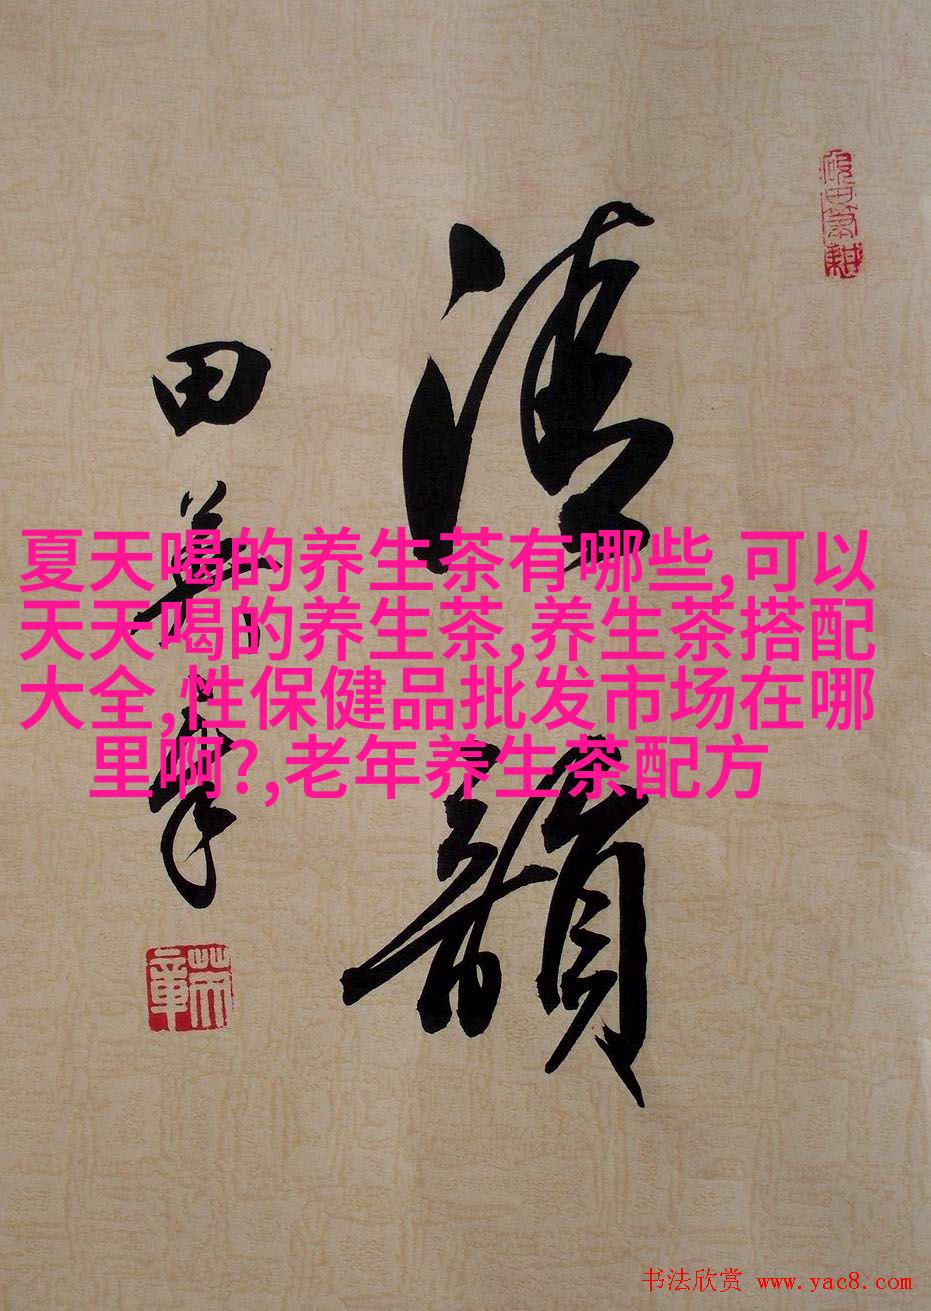 清韻
田
夏天喝的养生茶有哪些,可以
天天喝的养生茶,养生茶搭配
大全,性保健品批发市场在哪
里啊?,老年养生茶配方
书法欣赏 www.yac8.com